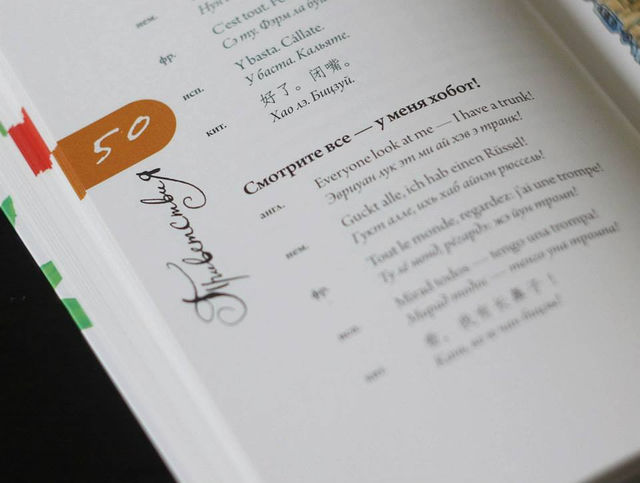 нем.
C'est tout. F
Сэ ту. Фэрм ла бу
фр.
Y basta. Cállate.
У баста. Кальяте.
исп.
好了。闭嘴。
Хао лэ. Бицзуй.
кит.
50
Приветствия
Смотрите все — у меня хобот!
англ.
Everyone look at me — I have a trunk!
Эвриуан лук эт ми ай хэв э транк!
нем.
Guckt alle, ich hab einen Rüssel!
Гукт алле, ихь хаб айнэн рюссель!
фр.
Tout le monde, regardez: j'ai une trompe!
Ту лё монд, рёгардэ: жэ йун тромп!
исп.
Mirad todos — tengo una trompa!
Мирад тодос — тенго уна тромпа!
кит.
看，我有长鼻子！